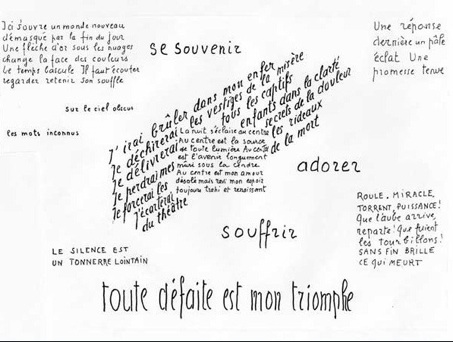 Ici s'ouvre un monde nouveau
démasqué par la fin du jour
Une flèche d'or sous les nuages
change la face des couleurs
Le temps bascule Il faut écouter
regarder retenir son souffle
se souvenir
Une réponse
dernière un pâle
éclat Une
promesse tenue
sur le ciel obscur
les mots inconnus
J'irai brûler dans mon enfer
Je déchirerai les vestiges de la misère
Je délivrerai tous les captifs
Je perdrai mes enfants dans la clarté
Je forcerai les secrets de la douleur
J'écarterai les rideaux
du théâtre de la mort
La nuit s'éclaire au centre
Au centre est la source
de toute lumière Au centre
est l'avenir longuement
mûri sous la cendre
Au centre est mon amour
désolé mais ravi mon espoir
toujours trahi et renaissant
adorer
souffrir
ROULE, MIRACLE,
TORRENT, PUISSANCE!
Que l'aube arrive,
reparte! Que fuient
les tourbillons!
SANS FIN BRILLE
CE QUI MEURT
LE SILENCE EST
UN TONNERRE LOINTAIN
toute défaite est mon triomphe